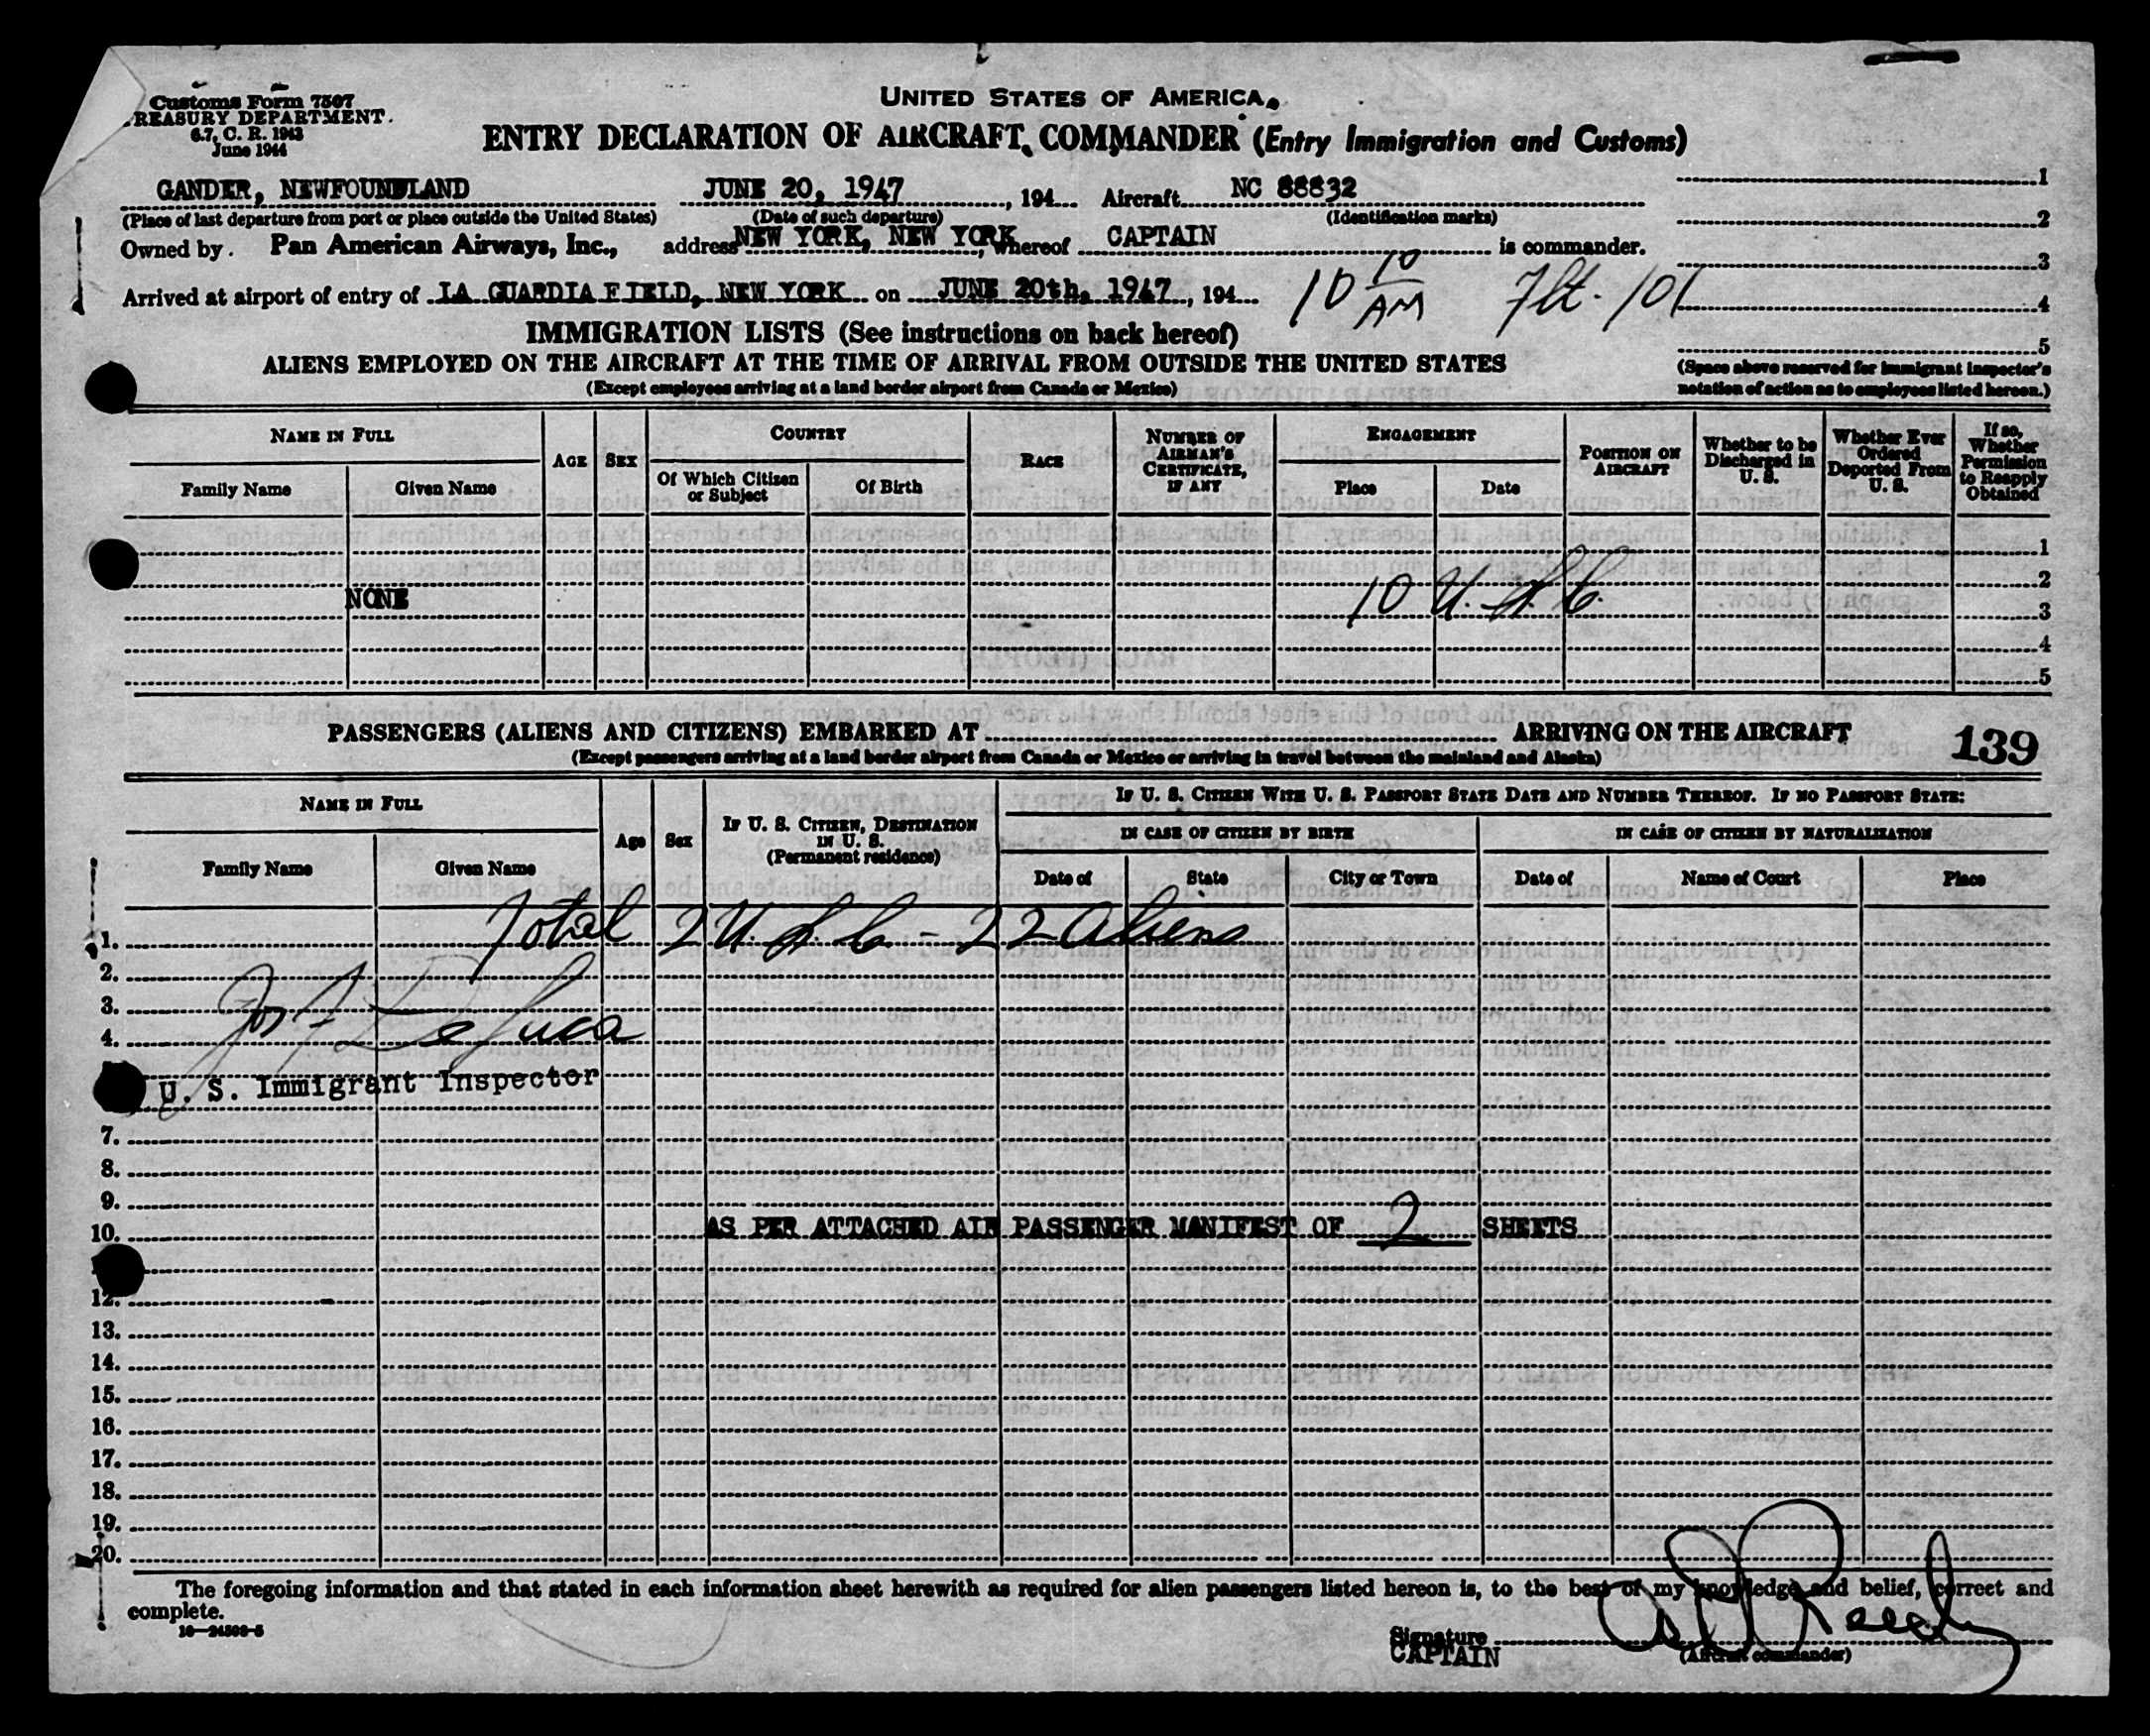 Customs Form 7507
TREASURY DEPARTMENT.
6.7, C. R. 1943
June 1944
UNITED STATES OF AMERICA
ENTRY DECLARATION OF AIRCRAFT COMMANDER (Entry Immigration and Customs)
GANDER, NEWFOUNDLAND JUNE 20, 1947, 194 Aircraft NC 88832 1
(Place of last departure from port or place outside the United States) (Date of such departure) (Identification marks) 2
Owned by Pan American Airways, Inc., address NEW YORK, NEW YORK, whereof CAPTAIN is commander. 3
Arrived at airport of entry of LA GUARDIA FIELD, NEW YORK on JUNE 20th, 1947, 194 10 10 AM Flt. 101 4
IMMIGRATION LISTS (See instructions on back hereof) 5
ALIENS EMPLOYED ON THE AIRCRAFT AT THE TIME OF ARRIVAL FROM OUTSIDE THE UNITED STATES
(Except employees arriving at a land border airport from Canada or Mexico)
(Space above reserved for immigrant inspector's
notation of action as to employees listed hereon.)
NAME IN FULL
Family Name
Given Name
AGE
SEX
COUNTRY
Of Which Citizen
or Subject
Of Birth
RACE
NUMBER OF
AIRMAN'S
CERTIFICATE,
IF ANY
ENGAGEMENT
Place
Date
POSITION ON
AIRCRAFT
Whether to be
Discharged in
U. S.
Whether Ever
Ordered
Deported From
U. S.
If so,
Whether
Permission
to Reapply
Obtained
1
2
NONE 10 U. S. C. 3
4
5
PASSENGERS (ALIENS AND CITIZENS) EMBARKED AT ARRIVING ON THE AIRCRAFT 139
(Except passengers arriving at a land border airport from Canada or Mexico or arriving in travel between the mainland and Alaska)
NAME IN FULL
Family Name
Given Name
Age
Sex
IF U. S. CITIZEN, DESTINATION
IN U. S.
(Permanent residence)
IF U. S. CITIZEN WITH U. S. PASSPORT STATE DATE AND NUMBER THEREOF. IF NO PASSPORT STATE:
IN CASE OF CITIZEN BY BIRTH
IN CASE OF CITIZEN BY NATURALIZATION
Date of
State
City or Town
Date of
Name of Court
Place
1. Total 2 U. S. C. - 22 Aliens
2.
3.
4. De Luca
U. S. Immigrant Inspector
7.
8.
9.
10. AS PER ATTACHED AIR PASSENGER MANIFEST OF 2 SHEETS
12.
13.
14.
15.
16.
17.
18.
19.
20.
The foregoing information and that stated in each information sheet herewith as required for alien passengers listed hereon is, to the best of my knowledge and belief, correct and
complete.
16—24508-5
Signature
CAPTAIN
(Aircraft commander)